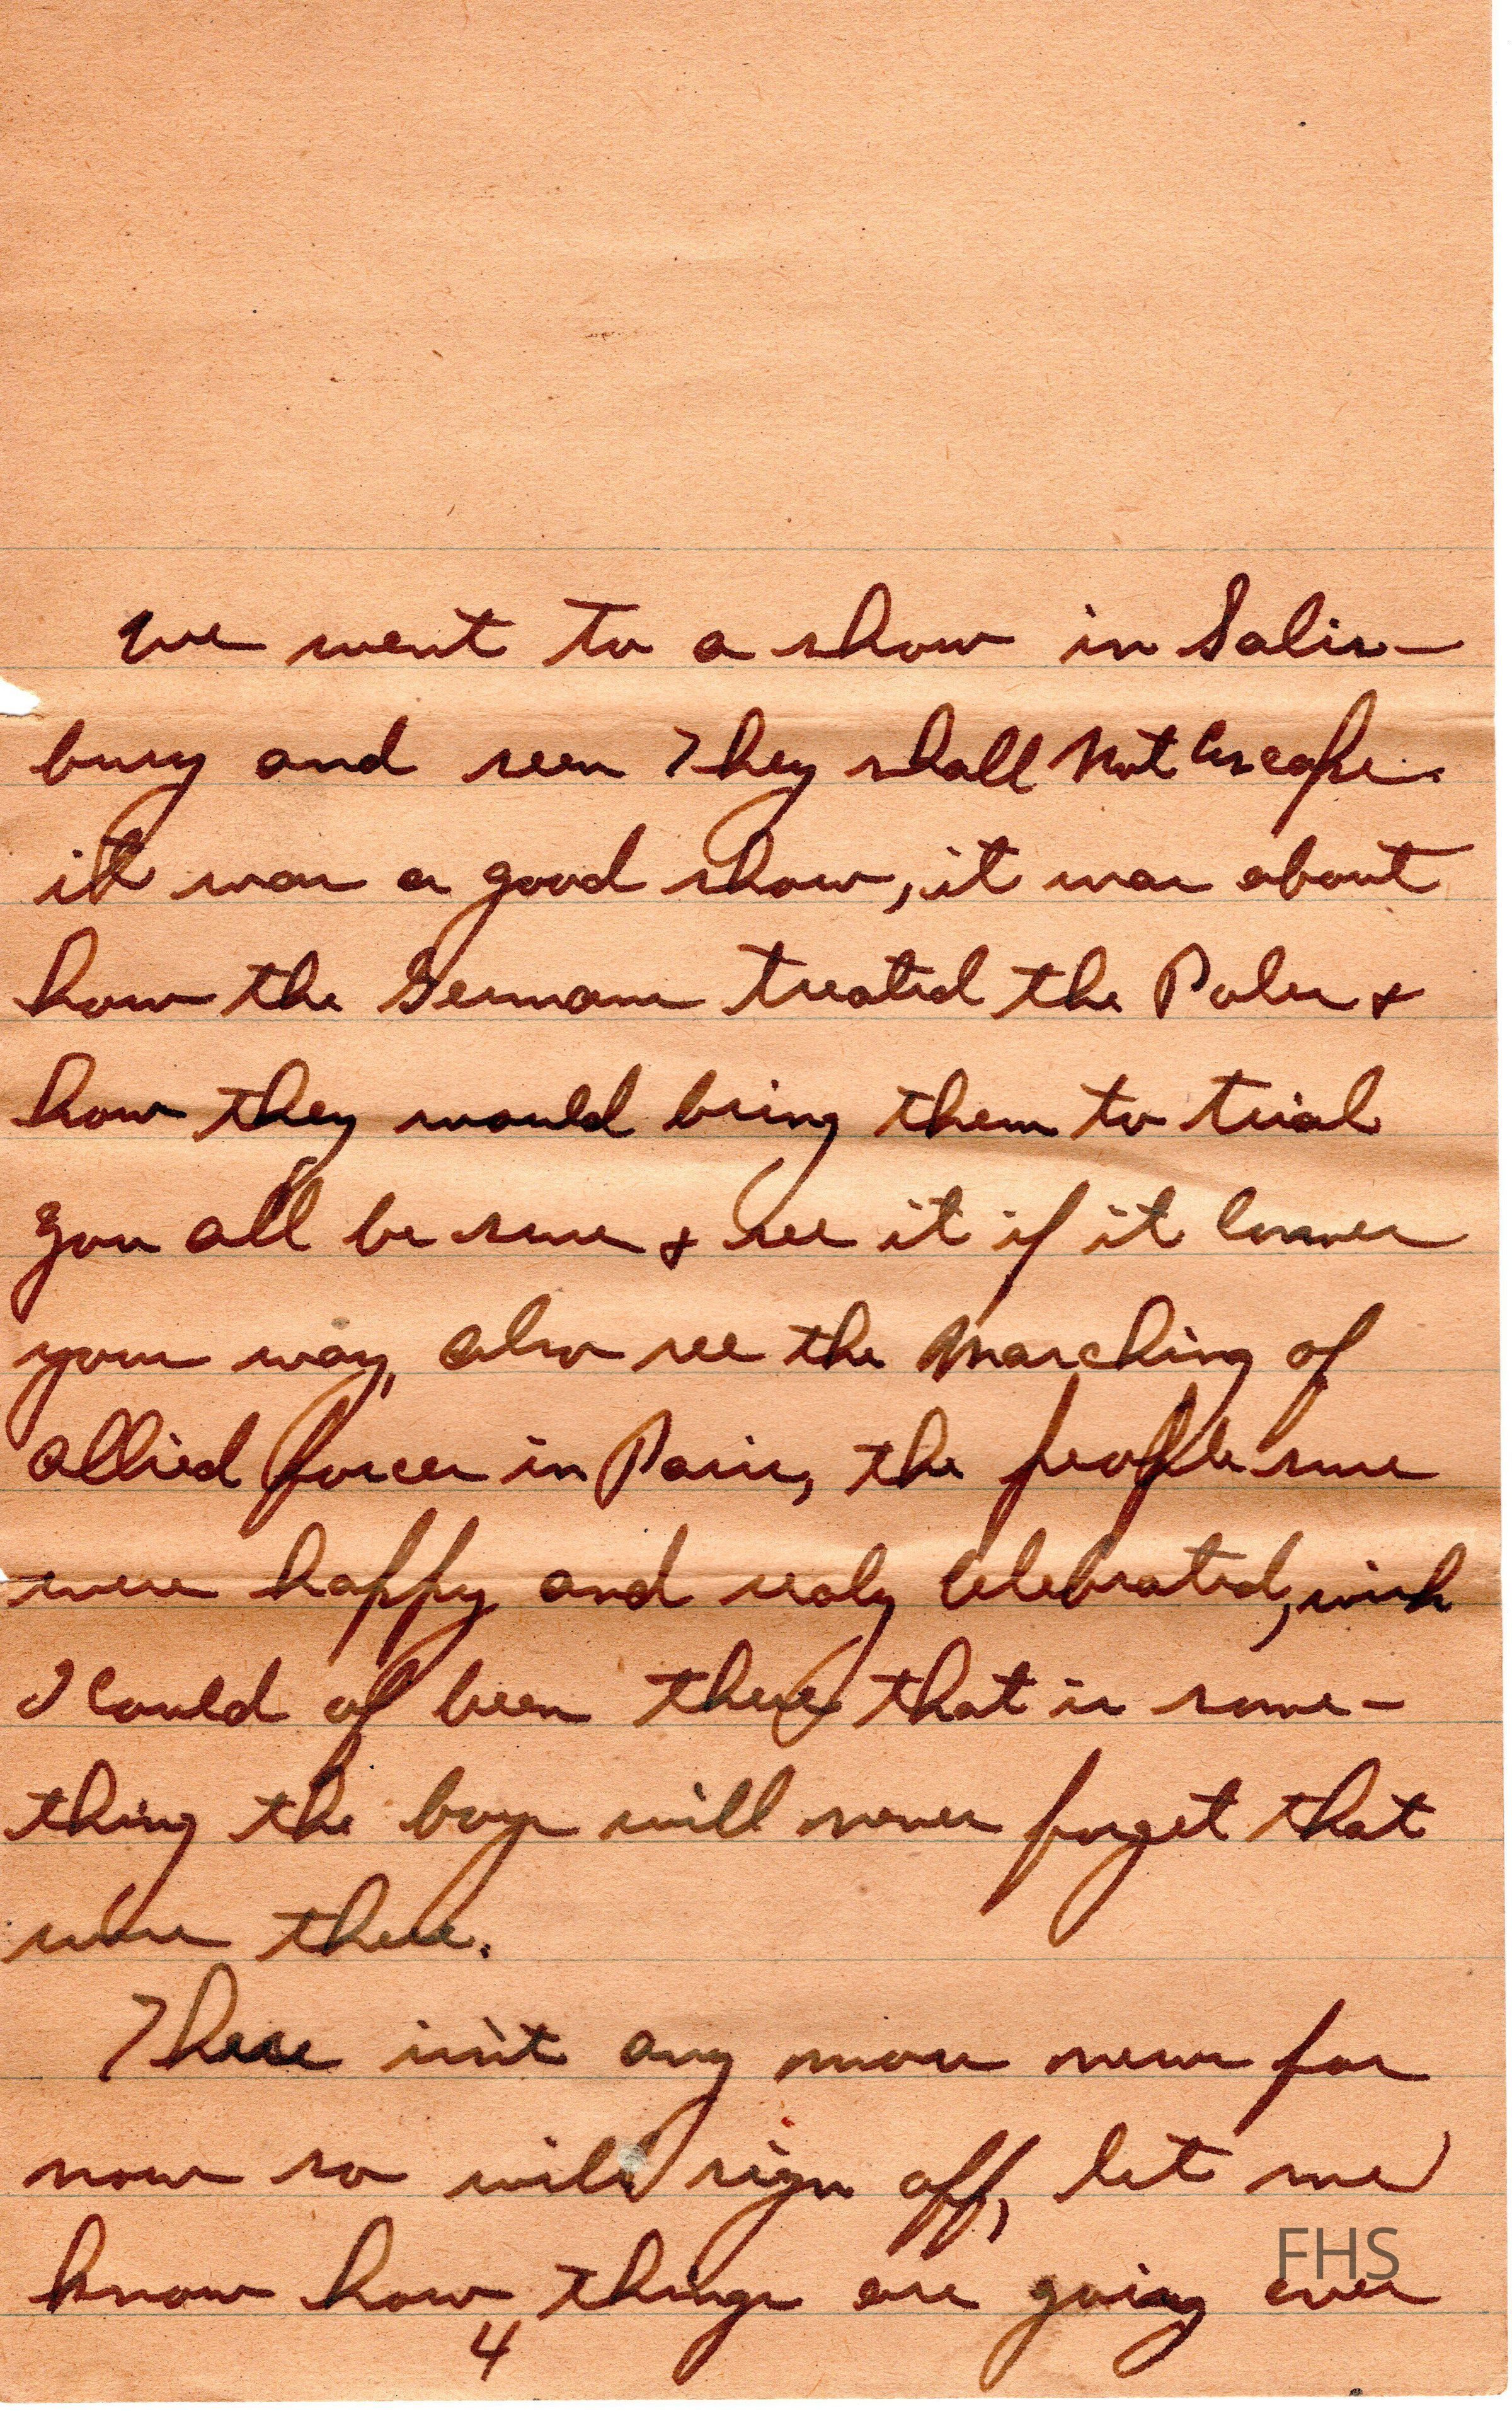 We went to a show in Salis-
bury and seen They shall Not Escape.
it was a good show, it was about
how the Germans treated the Poles +
how they would bring them to trial
you all be sure + see it if it comes
your way, also see the Marching of
allied forces in Paris, the people sure
were happy and realy Celebrated, wish
I Could of been there that is some-
thing the boys will never forget that
were there.
There isn't any more news for
now so will sign off, let me
know how things are going over
4
FHS